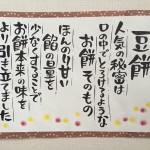 豆餅
人気の秘密は
口の中でとろけるような
お餅そのもの
ほんのり甘い
餡の量を
少なくすることで
お餅本来の味を
より引き立てました